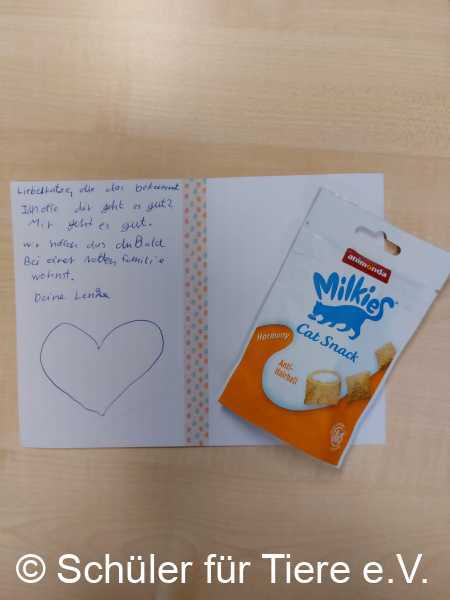 Liebe Katze, die das bekommt
Ich offe dir geht es gut?
Mir geht es gut.
wir hoffen das du Bald
Bei einer netten familie
wohnst.
Deine
animonda
Milkies
Cat Snack
Harmony
Anti-
Hairball
© Schüler für Tiere e.V.